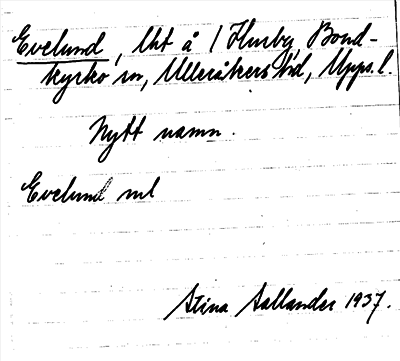 Evelund, lht å 1 Husby, Bond-
kyrko sn, Ulleråkers hd, Upps. l.
Nytt namn.
Evelund ml
Stina Sallander 1937.